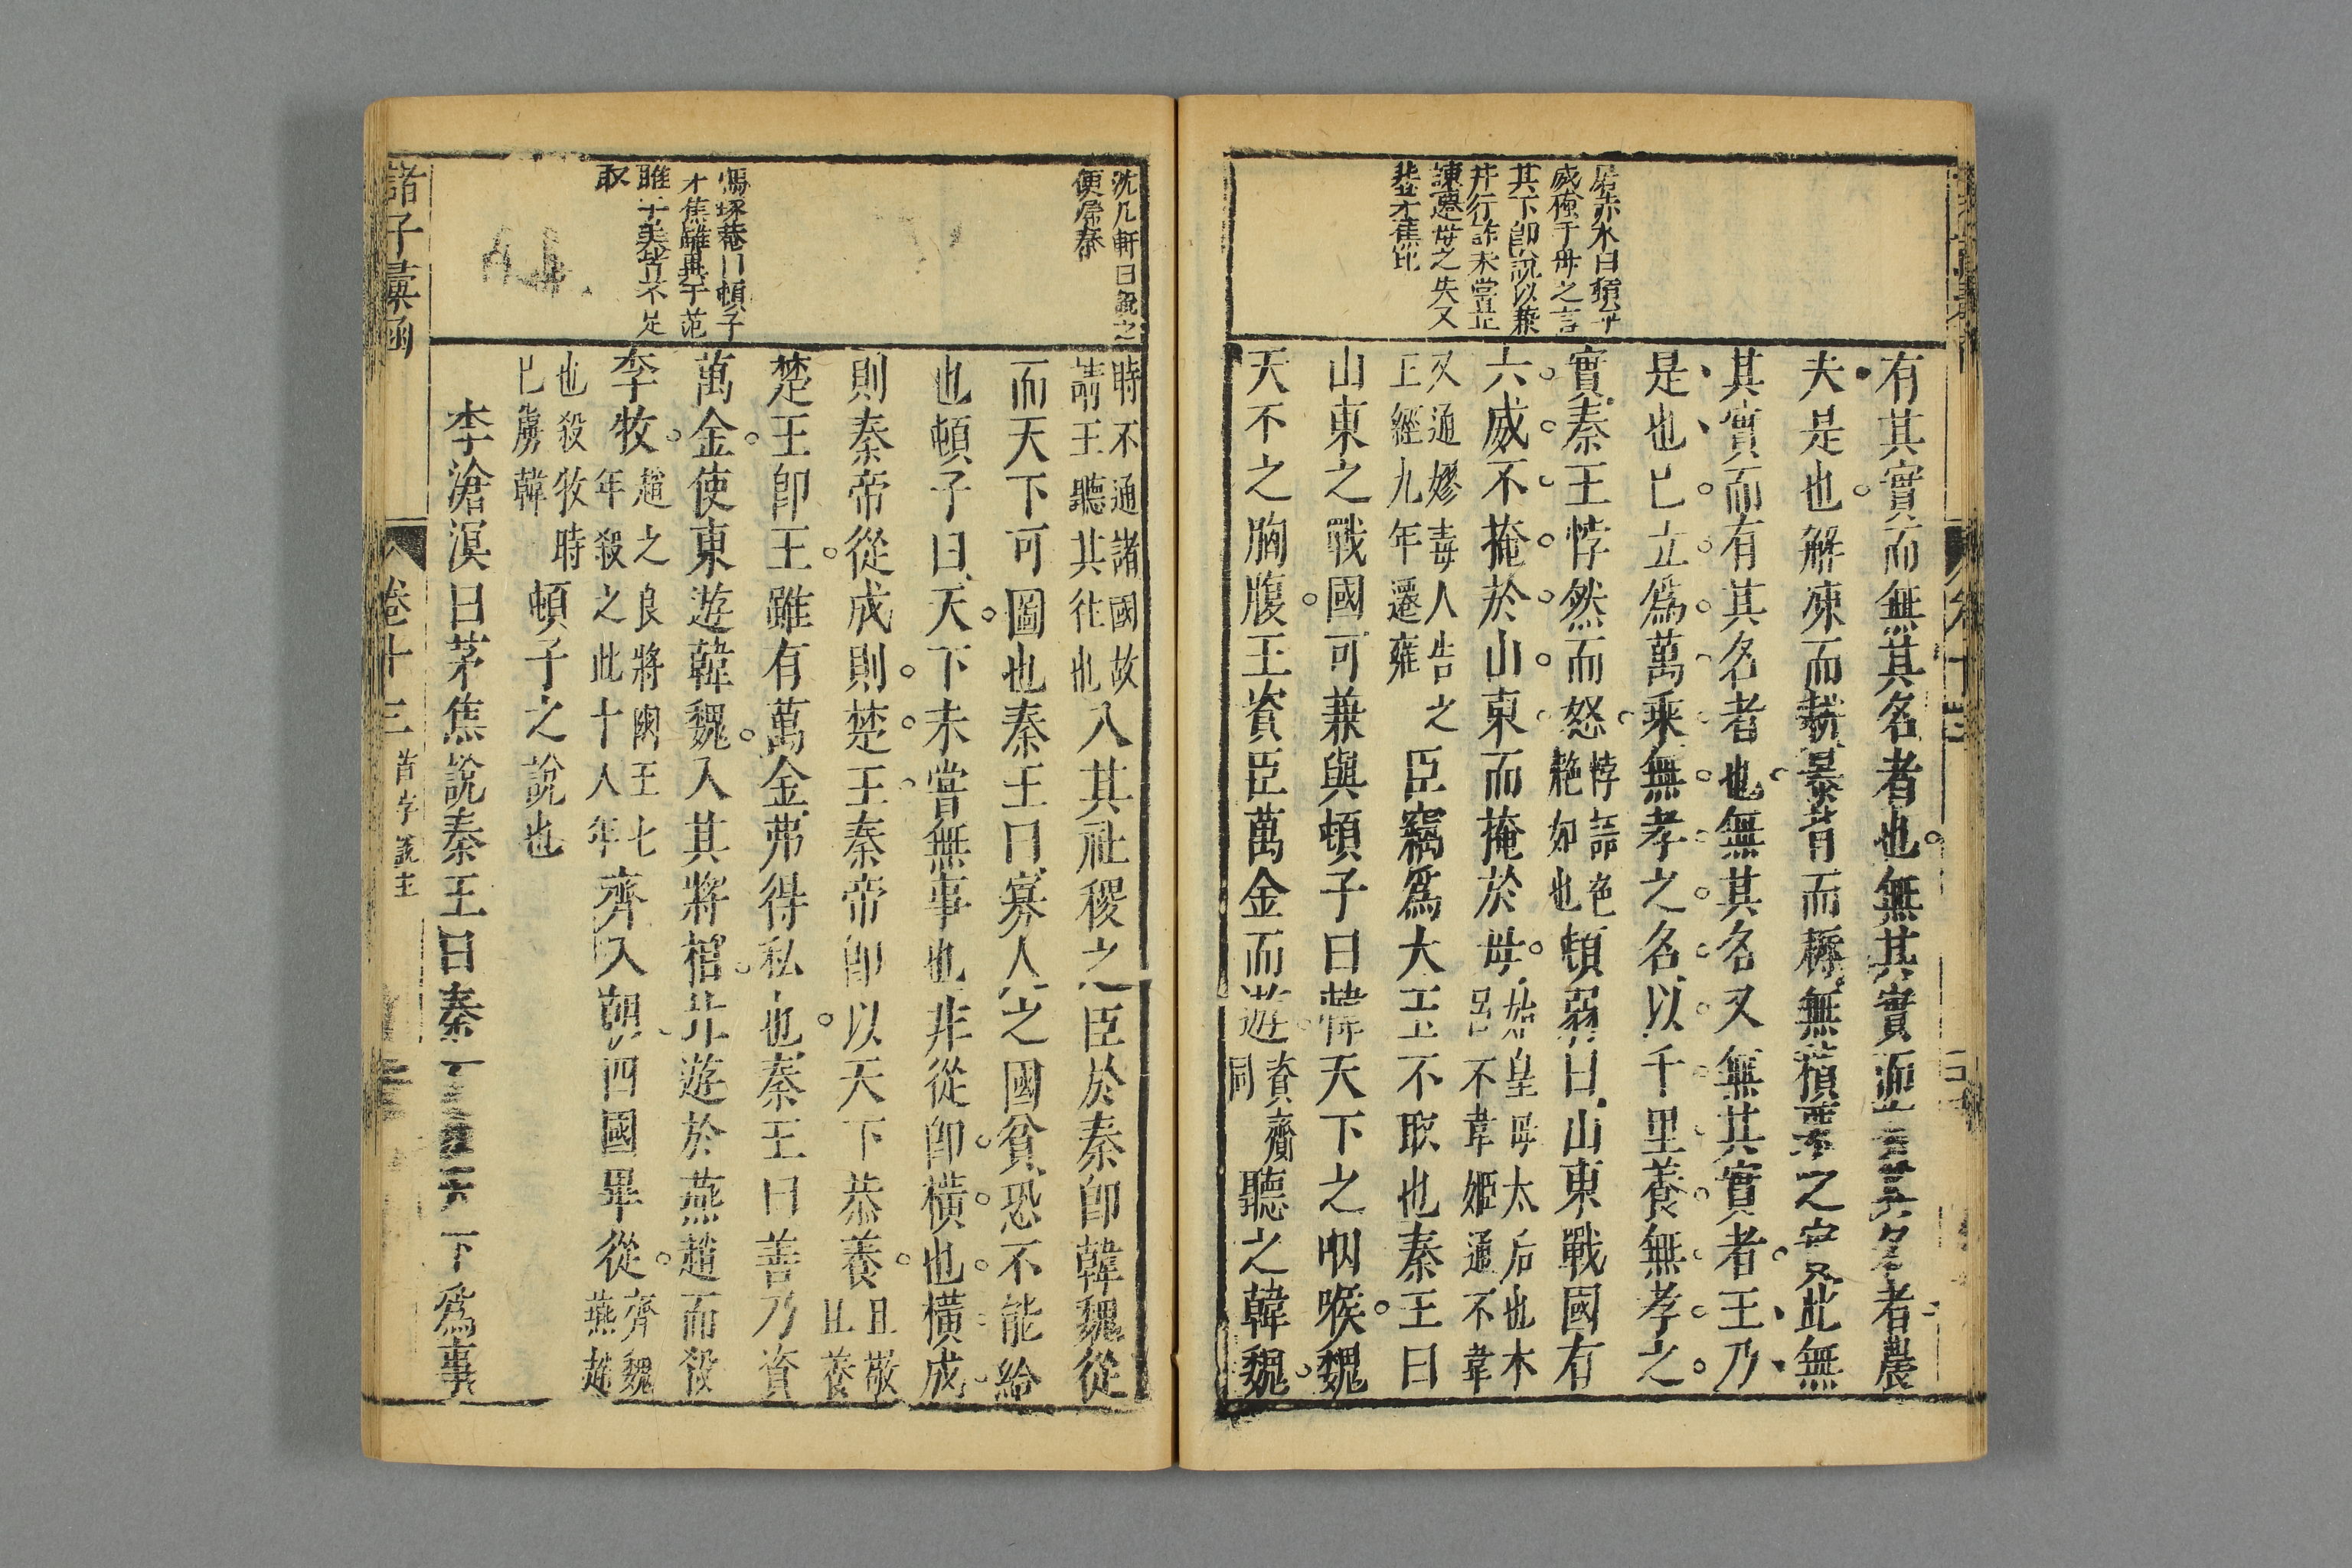 屠赤水曰頓子
威掩于母之言
其下卽說以兼
并行詐未嘗正
諫遷母之失又
非茅焦比
有其實而無其名者也無其實而名者農
夫是也解凍而耕暴背而耨無積粟之實此無
其實而有其名者也無其名又無其實者王乃
是也已立為萬乘無孝之名以千里養無孝之
實秦王悖然而怒
悖語色
艴如也
頓弱曰山東戰國有
六威不掩於山東而掩於母
始皇母太后也木
呂不韋姬通不韋
又通嫪毐人告之
王經九年遷雍
臣竊為大王不取也秦王曰
山東之戰國可兼與頓子曰韓天下之咽喉魏
天下之胸腹王資臣萬金而遊
資齎
同
聽之韓魏
沈几軒曰
便屬秦
時不通諸國故
請王聽其往也
入其社稷之臣於秦卽韓魏從
而天下可圖也秦王曰寡人之國貧恐不能給
也頓子曰天下未嘗無事也非從卽橫也橫成
則秦帝從成則楚王秦帝卽以天下恭養
且敬
且養
楚王卽王雖有萬金弗得私也秦王曰善乃資
萬金使東遊韓魏入其將相北遊於燕趙而殺
李牧
趙之良將閼王七
年殺之此十八年
齊入朝四國畢從
齊魏
燕趙
也殺牧時
已虜韓
頓子之說也
馮琢菴曰頓子
才焦雖異于范
雎辛美皆不足
取
李滄溟曰茅焦說秦王曰秦下為事
諸子彙函
卷十三
首字說王